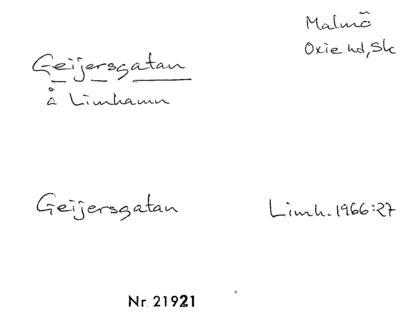 Malmö
Oxie hd, Sk
Geijersgatan
å Limhamn
Geijersgatan
Limh. 1966:27
Nr 21921